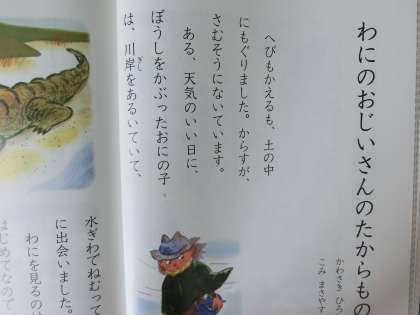 わにのおじいさんのたからもの
かわさき ひろ
こみ まさやす
へびもかえるも、土の中
にもぐりました。からすが、
さむそうにないています。
ある、天気のいい日に、
ぼうしをかぶったおにの子
は、川岸をあるいていて、
ぎし
水ぎわでねむって
に出会いました。
わにを見るのは
はじめてなので